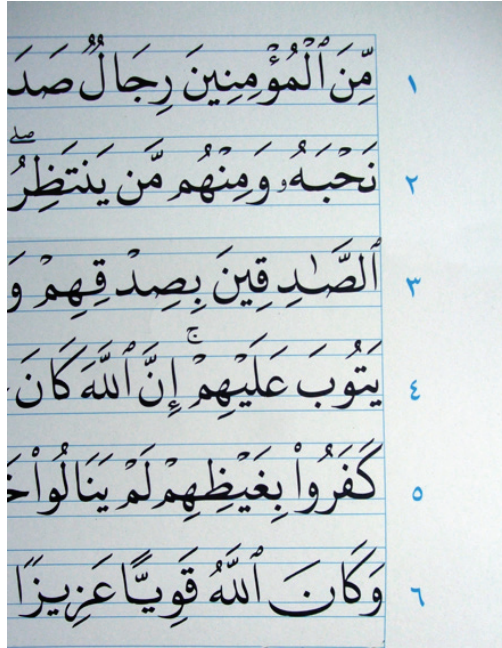 مِّنَ ٱلْمُؤْمِنِينَ رِجَالٌ صَدَ ١
نَحْبَهُۥ وَمِنْهُم مَّن يَنتَظِرُ ۖ ٢
ٱلصَّٰدِقِينَ بِصِدْقِهِمْ وَ ٣
يَتُوبَ عَلَيْهِمْ ۚ إِنَّ ٱللَّهَ كَانَ ٤
كَفَرُوا۟ بِغَيْظِهِمْ لَمْ يَنَالُوا۟ خَ ٥
وَكَانَ ٱللَّهُ قَوِيًّا عَزِيزًا ٦